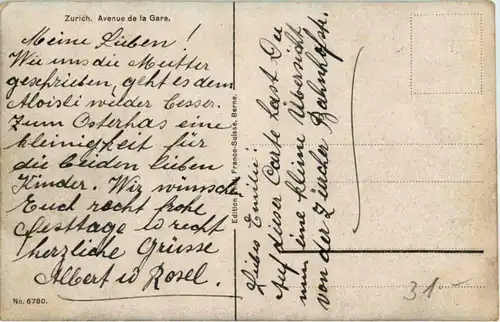 Zurich. Avenue de la Gare.
Meine Lieben!
Wie uns die Mutter
geschrieben, geht es dem
Aloisli wieder besser.
Zum Osterhas eine
kleinigkeit für
die beiden lieben
Kinder. Wir wünschen
Euch recht frohe
Festtage u recht
herzliche Grüsse
Albert u Rosel.
No. 6780.
Edition Franco-Suisse, Berne.
Liebes Emilie!
Auf dieser Carte hast Du
nun eine kleine Übersicht
von der Zürcher Bahnhofstr.
31.-